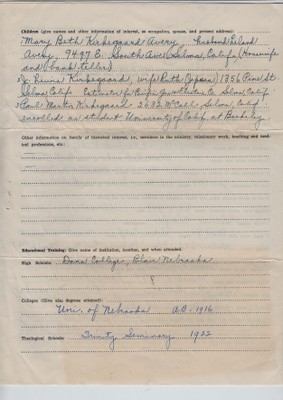 Children (give names and other information of interest, as occupation, spouse, and present address):
Mary Beth Kirkegaard Avery, husband Leland
Avery, 9497 E. South Ave Selma, Calif. (Housewife
and bank teller)
J. Reinus Kirkegaard, wife Ruth 1356 Pine St
Selma Calif. Estimator for Construction Co Selma Calif.
Paul Martin Kirkegaard 2682 McCall, Selma, Calif.
enrolled as student University of Calif. at Berkeley.
Other information on family of historical interest, i.e., members in the ministry, missionary work, teaching and medical professions, etc.:
Educational Training: (Give name of institution, location, and when attended.
High Schools: Dana College, Blair Nebraska
Colleges (Give also degrees attained):
Uni. of Nebraska A.B. 1916
Theological Schools: Trinity Seminary 1922